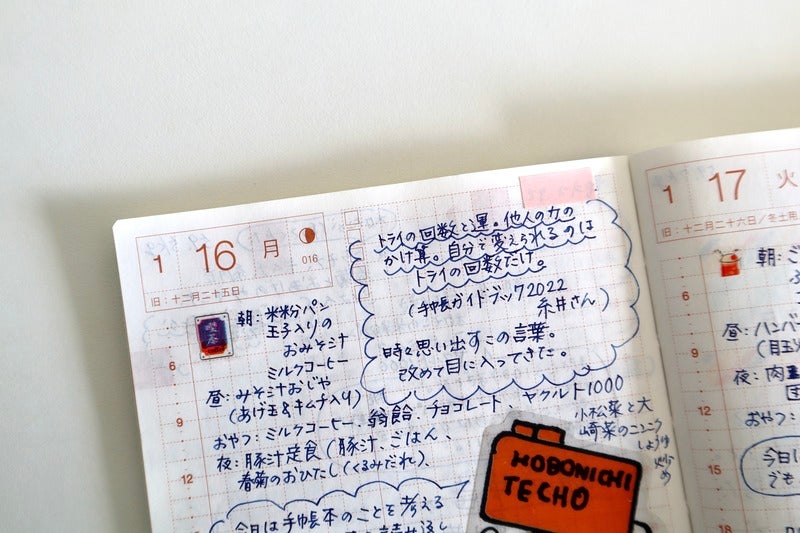 1 16 月
016
旧：十二月二十五日
喫茶
朝：米粉パン
玉子入りの
おみそ汁
ミルクコーヒー
昼：みそ汁おじや
(あげ玉&キムチ入り)
おやつ：ミルクコーヒー、翁飴、チョコレート、ヤクルト1000
夜：豚汁定食(豚汁、ごはん、
春菊のおひたし(くるみだれ)、
小松菜と大
崎菜のニンニク
しょうゆ
炒め
トライの回数と運。他人の力の
かけ算。自分で変えられるのは
トライの回数だけ。
(手帳ガイドブック2022
糸井さん)
時々思い出すこの言葉。
改めて目に入ってきた。
今日は手帳本のことを考える
読み返し
HOBONICHI
TECHO
6
9
12
1 17 火
旧：十二月二十六日／冬土用
朝：ご
昼：ハンバー
(目玉
夜：肉
おやつ：
今日は
でも
6
9
12
15
18